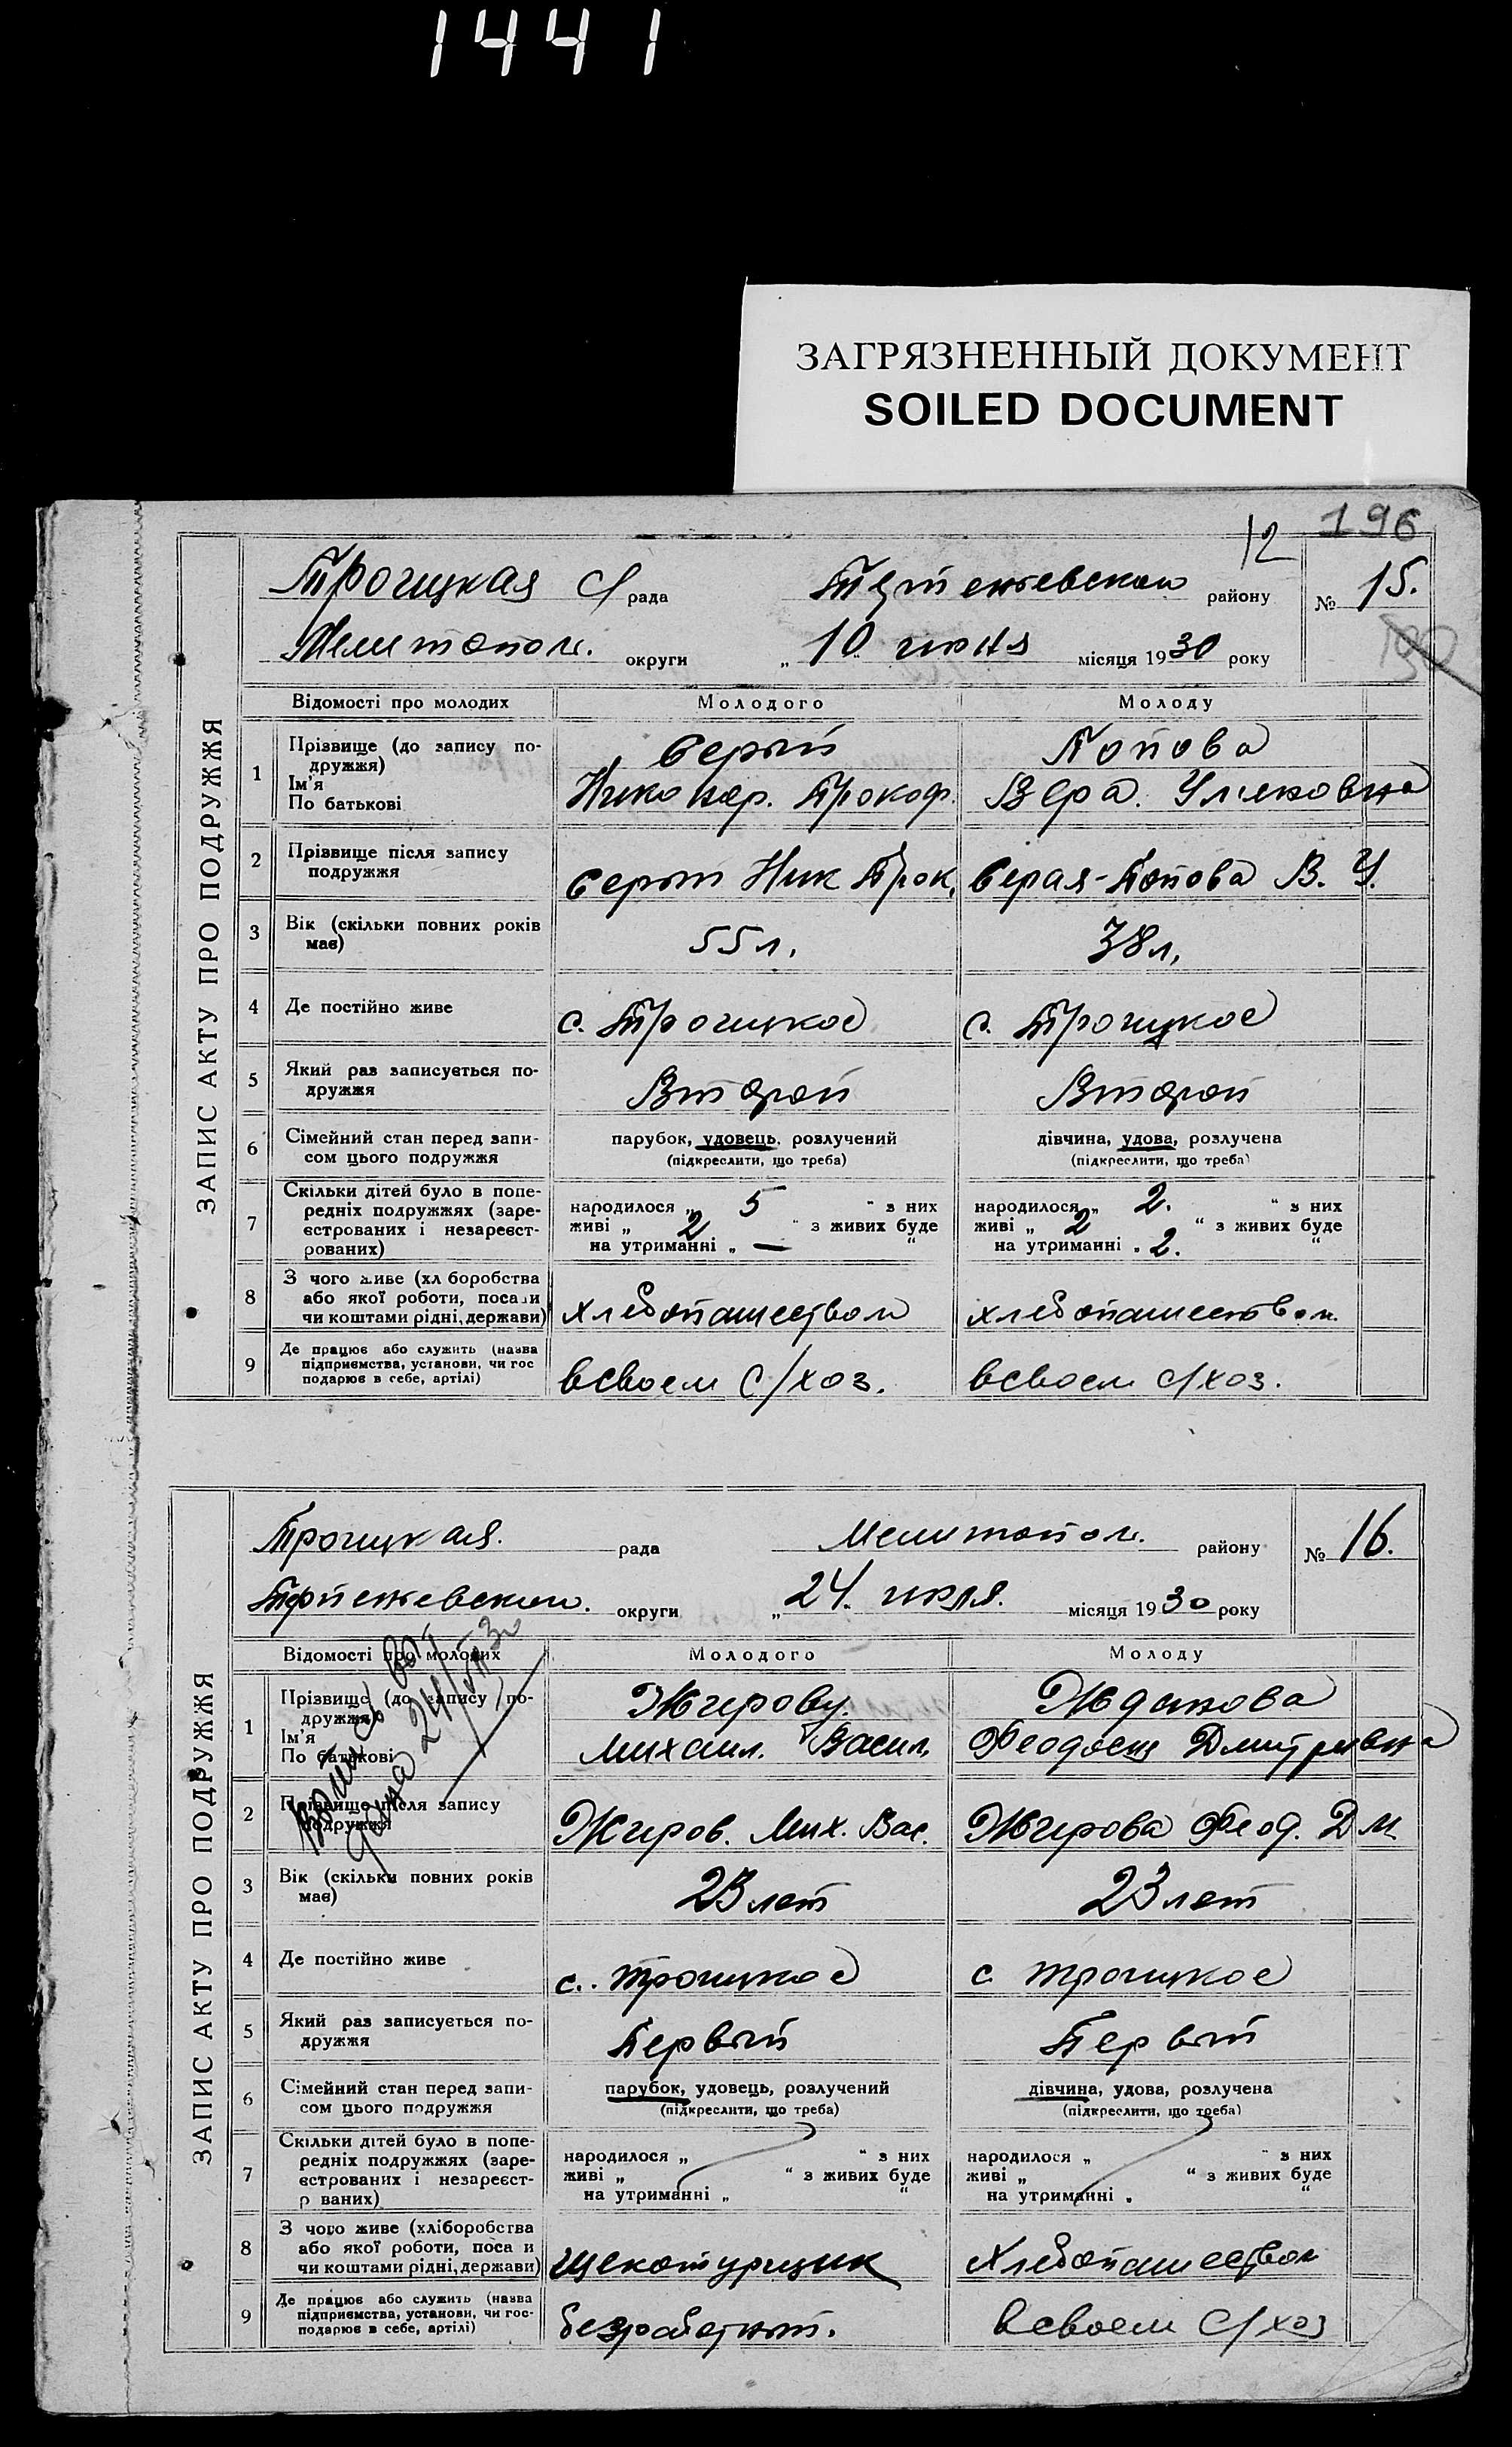 1441
ЗАГРЯЗНЕННЫЙ ДОКУМЕНТ
SOILED DOCUMENT
196
12
ЗАПИС АКТУ ПРО ПОДРУЖЖЯ
Троицкая С/рада району № 15.
Мелитопол. округи „ 10 июня місяця 1930 року
190
Відомості про молодих Молодого Молоду
1 Прізвище (до запису по-
дружжя)
Ім'я
По батькові
Серый Попова
Никонор. Прокоф. Вера. Ульяновна
2 Прізвище після запису
подружжя
Серый Ник Прок. Серая-Попова В. У.
3 Вік (скільки повних років
має)
55 л. 38 л.
4 Де постійно живе с. Троицкое с. Троицкое
5 Який раз записується по-
дружжя
Второй Второй
6 Сімейний стан перед запи-
сом цього подружжя
парубок, удовець, розлучений дівчина, удова, розлучена
(підкреслити, що треба) (підкреслити, що треба)
7 Скільки дітей було в попе-
редніх подружжях (заре-
єстрованих і незареєст-
рованих)
народилося „ 5 “ з них народилося „ 2. “ з них
живі „ 2 “ з живих буде живі „ 2 “ з живих буде
на утриманні „ — “ на утриманні „ 2. “
8 З чого живе (хл боробства
або якої роботи, посади
чи коштами рідні, держави)
хлебопашеством хлебопашеством.
9 Де працює або служить (назва
підприємства, установи, чи гос
подарює в себе, артілі)
в своем с/хоз. в своем с/хоз.
ЗАПИС АКТУ ПРО ПОДРУЖЖЯ
Троицкая. рада Мелитопол. району № 16.
округи „ 24. июля. місяця 1930 року
Відомості про молодих Молодого Молоду
1 Прізвище (до запису по-
дружжя)
Ім'я
По батькові
Жирову. Жданова
Михаил. Васил. Феодосия Дмитриевна
2 Прізвище після запису
подружжя
Жиров. Мих. Вас. Жирова Феод. Дм
3 Вік (скільки повних років
має)
23 лет 23 лет
4 Де постійно живе с. Троицкое с Троицкое
5 Який раз записується по-
дружжя
Первый Первый
6 Сімейний стан перед запи-
сом цього подружжя
парубок, удовець, розлучений дівчина, удова, розлучена
(підкреслити, що треба) (підкреслити, що треба)
7 Скільки дітей було в попе-
редніх подружжях (заре-
єстрованих і незареєст-
р ваних)
народилося „ “ з них народилося „ “ з них
живі „ “ з живих буде живі „ “ з живих буде
на утриманні „ “ на утриманні „ “
8 З чого живе (хліборобства
або якої роботи, поса и
чи коштами рідні, держави)
щекотурщик Хлебопашеством
9 Де працює або служить (назва
підприємства, установи, чи гос-
подарює в себе, артілі)
безработный. в своем с/хоз